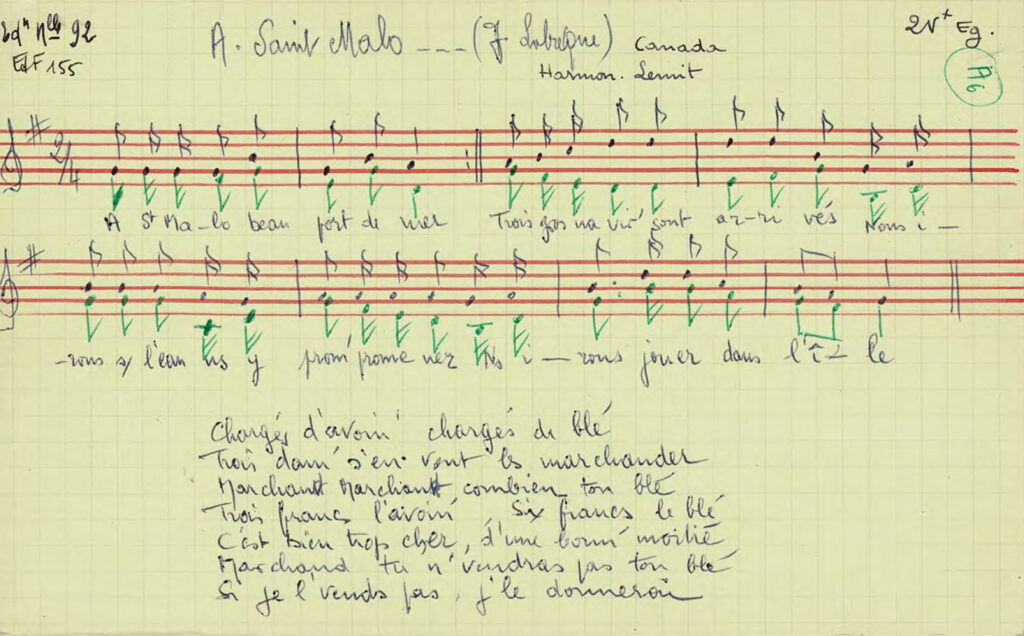 Edn Nlle 92
Ed F 155
A. Saint Malo --- (J Labrègue) Canada
Harmon. Lemit
2V+ Eg.
A6
2/4
A St Ma-lo beau port de mer Trois gros na vir' sont ar-ri vés Nous i-
-rous s/ l'eau ns y prom' prome ner Ns i-rons jouer dans l'î-le
Chargés d'avoin' chargés de blé
Trois dam' s'en vont les marchander
Marchand Marchand combien ton blé
Trois francs l'avoin', Six francs le blé
C'est bien trop cher, d'une bonn' moitié
Marchand tu n'vendras pas ton blé
Si je l'vends pas, j'le donnerai